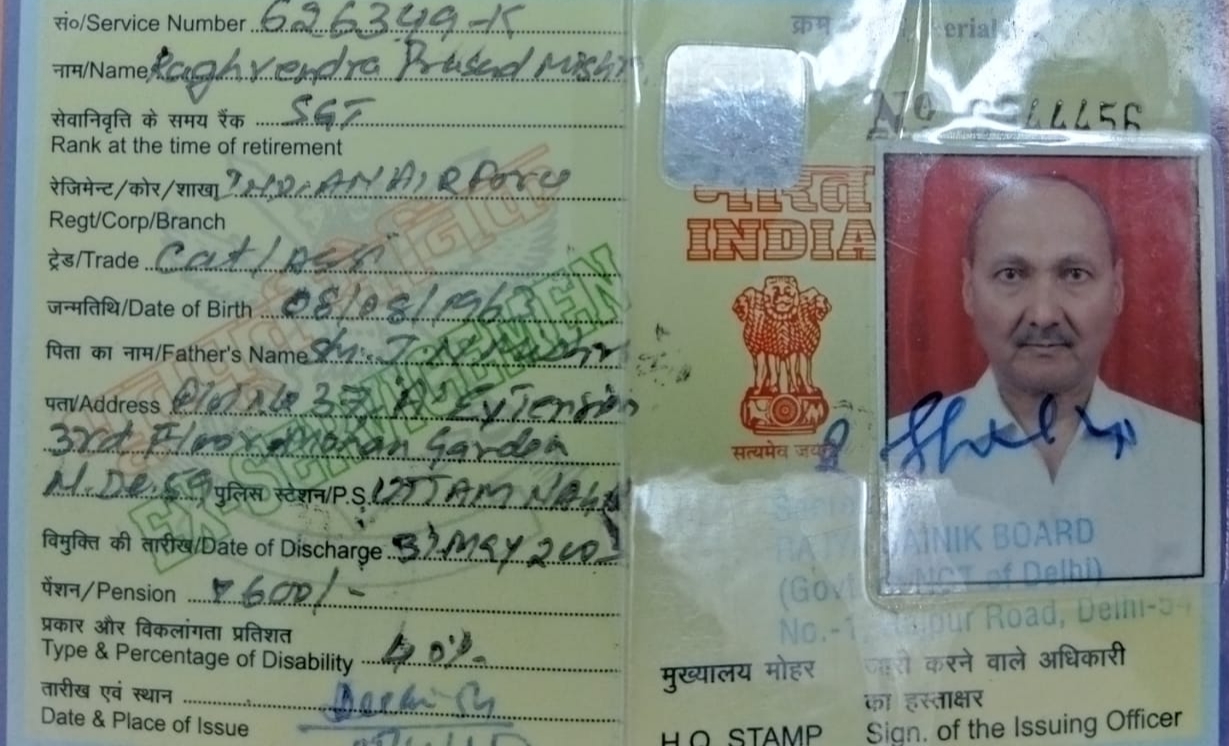 सं०/Service Number 626349-K
नाम/Name Raghvendra Prasad
सेवानिवृत्ति के समय रैंक SGT
Rank at the time of retirement
रेजिमेन्ट/कोर/शाखा INDIAN AIR
Regt/Corp/Branch
ट्रेड/Trade Cat/
जन्मतिथि/Date of Birth 08/08/1963
पिता का नाम/Father's Name
पता/Address 37 A Extension
3rd Floor Mohan Garden
N. De. 59 पुलिस स्टेशन/P.S. UTTAM
विमुक्ति की तारीख/Date of Discharge 31 MAY
पेंशन/Pension 7600/-
प्रकार और विकलांगता प्रतिशत
Type & Percentage of Disability 40%
तारीख एवं स्थान
Date & Place of Issue Delhi
भूतपूर्व सैनिक
EX-SERVICEMEN
क्रम
Nº 44456
भारत
INDIA
सत्यमेव जयते
SAINIK BOARD
(Govt. of NCT of Delhi)
Road, Delhi-54
मुख्यालय मोहर
H.Q. STAMP
जारी करने वाले अधिकारी
का हस्ताक्षर
Sign. of the Issuing Officer